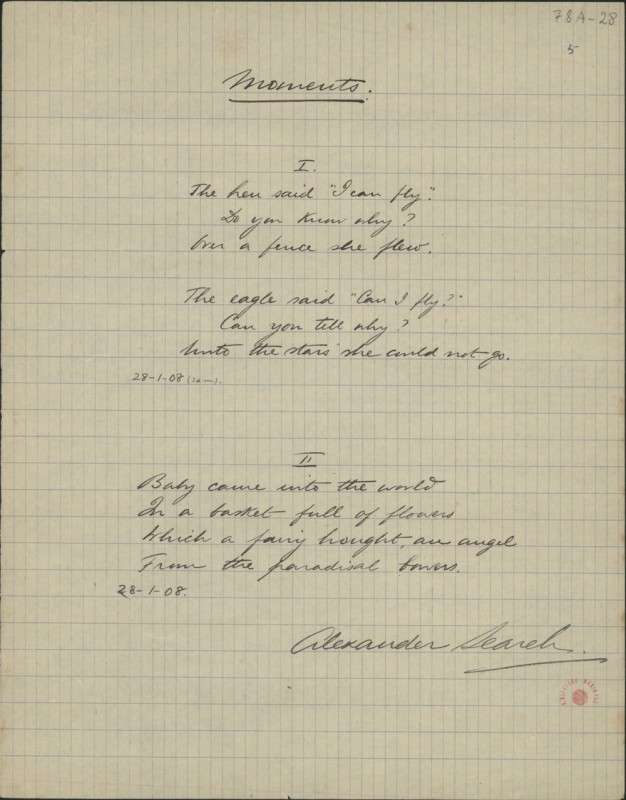 78A-28
5
Moments.
I.
The hen said "I can fly".
Do you know why?
Over a fence she flew.
The eagle said "Can I fly?"
Can you tell why?
Unto the stars she could not go.
28-1-08
II
Baby came into the world
In a basket full of flowers
Which a fairy brought, an angel
From the paradisal bowers.
28-1-08.
Alexander Search.